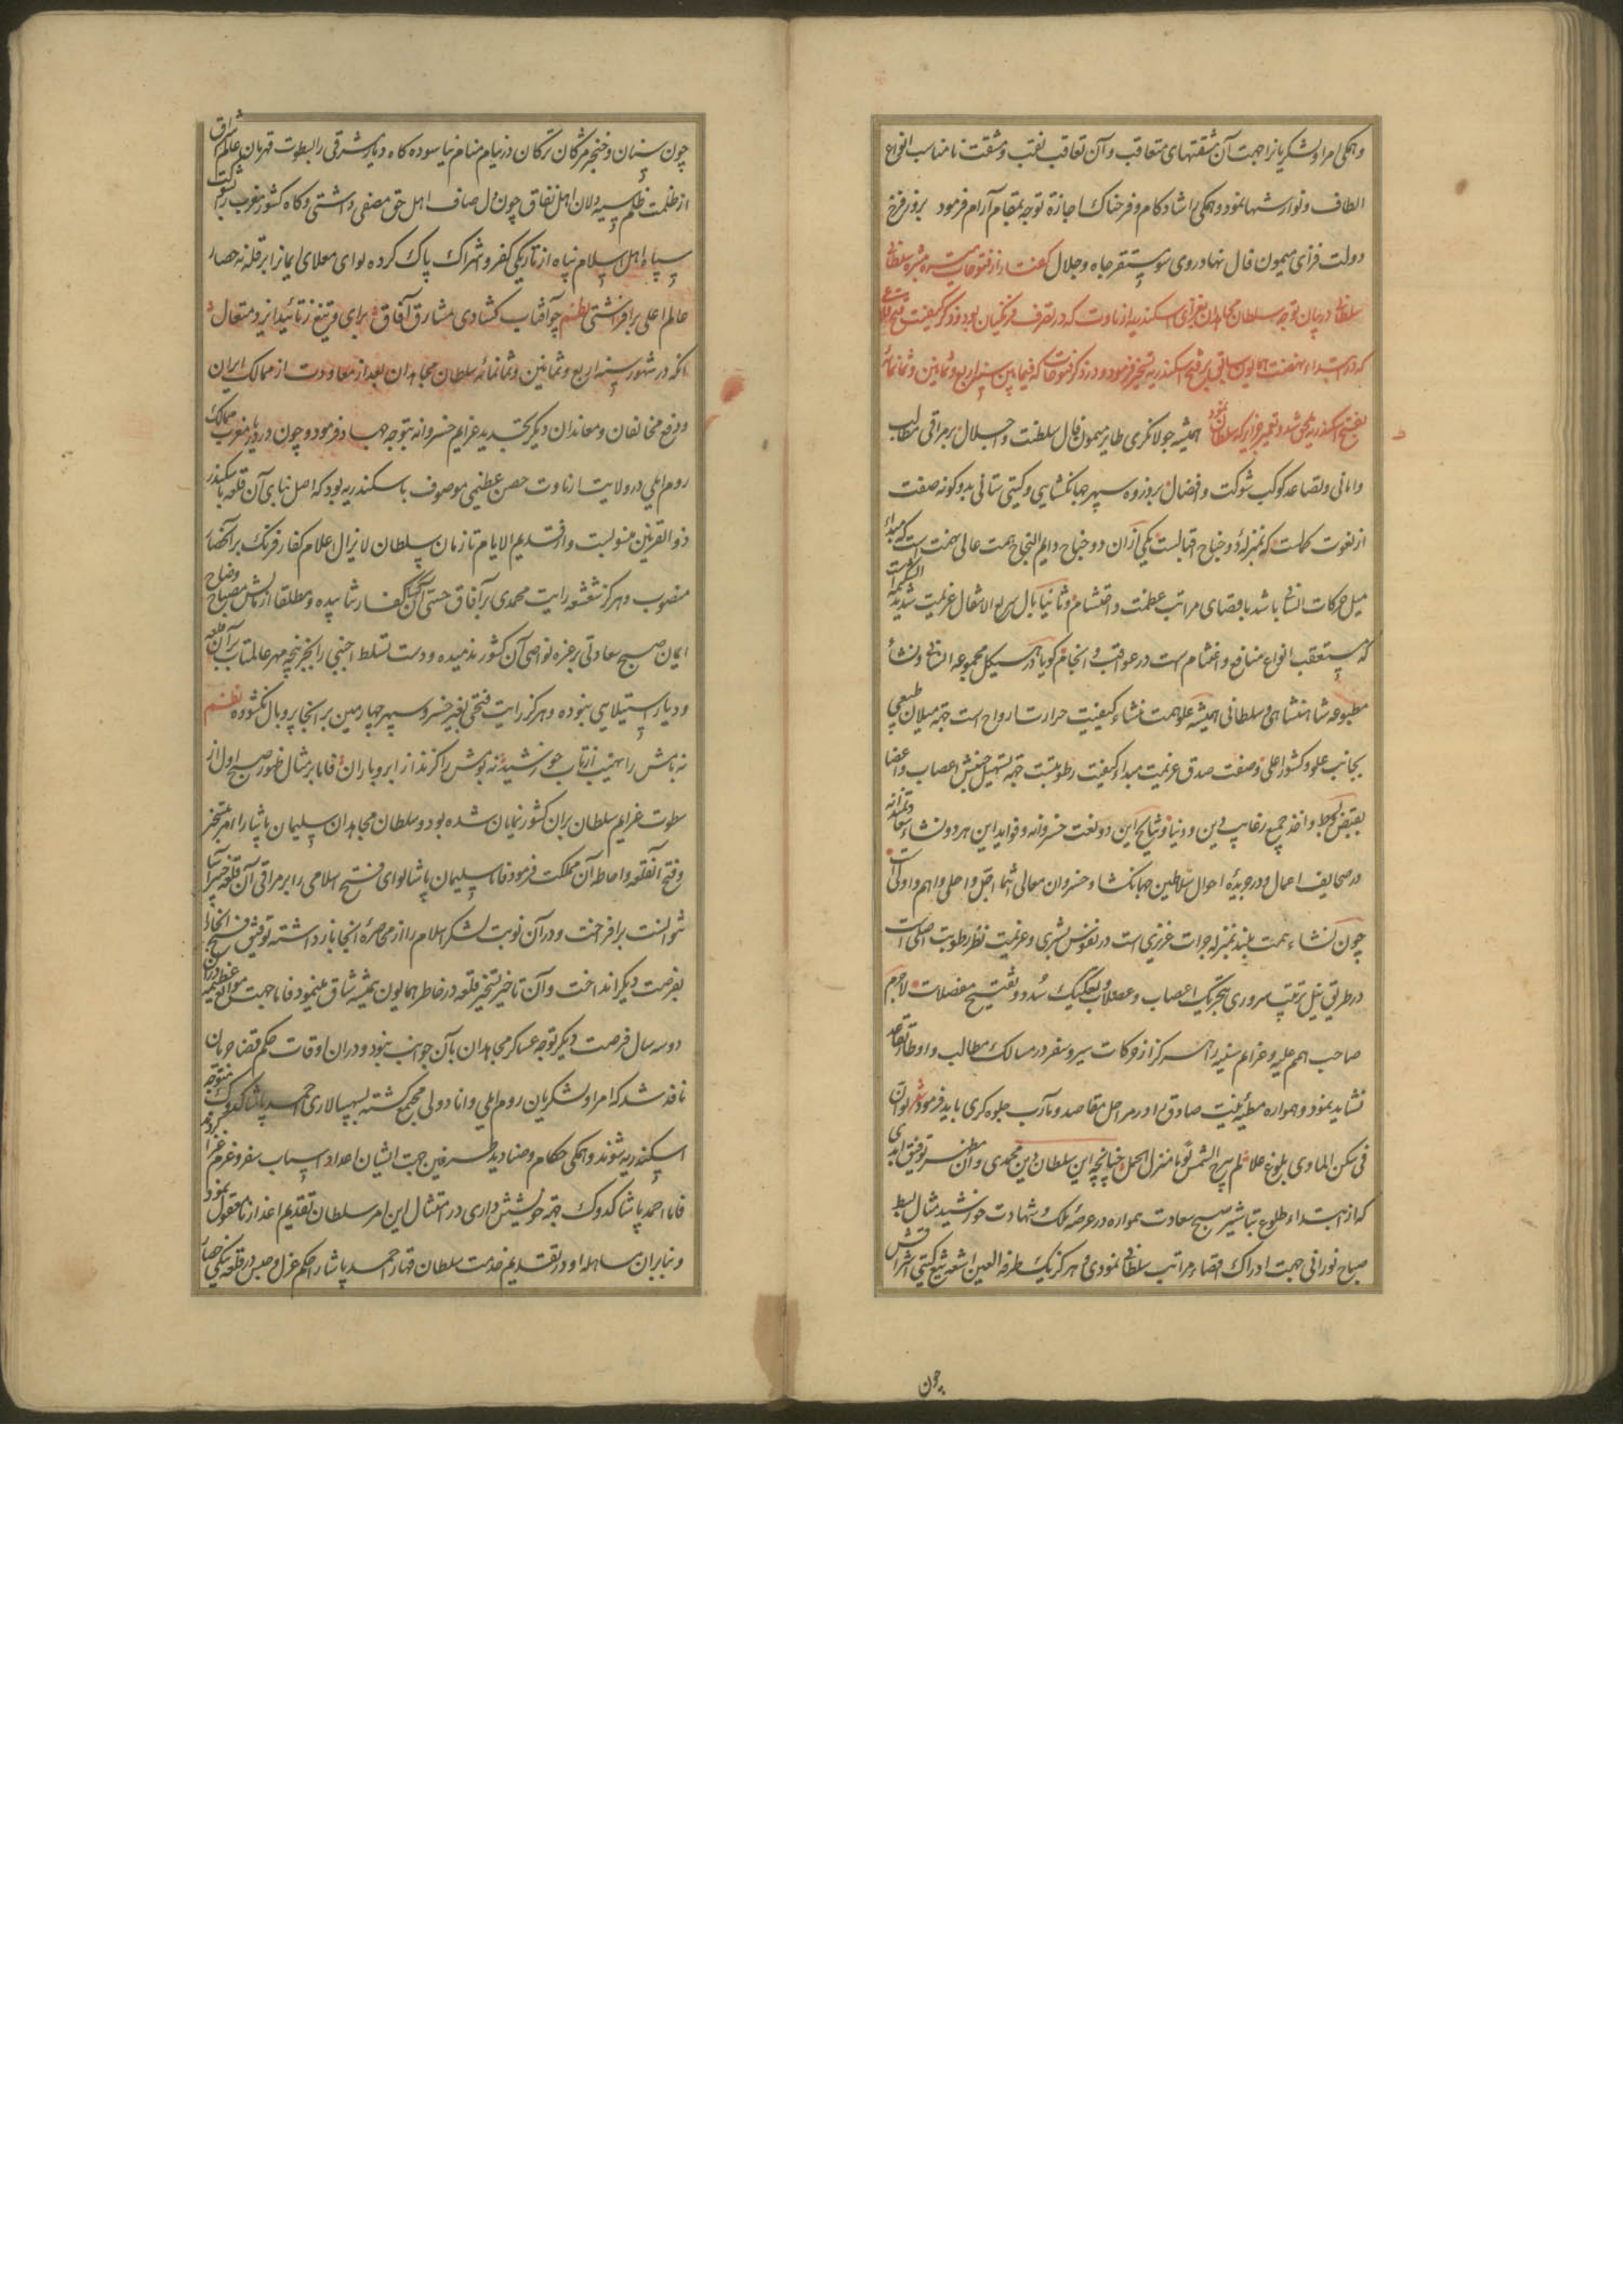 و همکی امرا و لشکریانرا جهت آن مشقتهای متعاقب و آن تعاقب تعب و مشقت نامناسب انواع
الطاف و نوازشها نمود و همکی را شادکام و فرحناک اجازة توجه بمقام آرام فرمود بروز فرخ
دولت فزای میمون فال نهاد روی سوی مستقر جاه و جلال کفتار از فتوحات میسره مبشره سلطانی
سلطان در بیان توجه سلطان مجاهدان بغزای اسکندریه ارناوت که در تصرف فرنکیان بود و ذکر کیفیت فتح قلاع
که در ابتداء نهضت همایون سابق بر فتح اسکندریه تسخیر فرمود و ذکر فتوحات که فیما بین سنه اربع و ثمانین و ثمانمائه
بفتح اسکندریه ملحق شد همیشه جولانکری طایر میمون فال سلطنت و اجلال بر مراقی مطالب
و امانی و تصاعد کوکب شوکت و افضال بر ذروه سپهر جهانکشایی و کیتی ستانی بدو کونه صفت
از نعوت کمالست که بمنزله دو جناح اقبالست یکی از آن دو جناح دایم النجاح همت عالی نهمت است که مبداء
میل حرکات انسانی باشد باقصای مراتب عظمت و احتشام و ثانیا بال سریع الانتقال عزیمت شدید
که مستعقب انواع منافع و اغتنام است در عواقب و انجام کویا در هیکل مجموعه انسانی و نشأ
مطبوعه شاهنشاهی و سلطانی همیشه علو همت منشاء کیفیت حرارت ارواح است جهة میلان طبیعی
بجانب علو و کشور اعلی و صفت صدق عزیمت مبداء کیفیت رطوبتست جهة تسهیل جنبش اعصاب و اعضا
بقبض و بسط و اخذ جمیع رغایب دین و دنیا و نتایج این دو نعت خسروانه و فواید این هر دو نشاء
در صحایف اعمال و در جریدۀ احوال سلاطین جهانکشا و خسروان معالی انتما اجل و اعلی و اهم و اولی است
چون نشاء همت بلند بمنزله حرارت غریزی است در نفوس بشری و عزیمت نظیر رطوبت اصلی است
در طریق نیل رتبت سروری بتحریک اعصاب و عضلات و بتفکیک سُدد و تفتیح معضلات لاجرم
صاحب همم علیه و عزایم سنیه را هرکز از حرکات سیر و سفر در مسالک مطالب و اوطار تقاعد
نشاید نمود و همواره مطیۀ نیت صادق را در مراحل مقاصد و مآرب جلوه کری باید فرمود شعر لو ان
فی سکن الماوی بلوغ علا لم یبرح الشمس یوما منزل الحمل چنانچه این سلطان دین محمدی و آن مظهر توفیق ابدی
که از ابتداء طلوع تباشیر صبح سعادت همواره در عرصۀ ملک و شهادت خورشید مثال بسط
صباح نورانی جهت ادراک اقصاء مراتب سلطانی نمودی و هرکز یک طرفة العین اشعه تیغ کیتی اشراقش
چون
چون سنان و خنجر مژکان ترکان در نیام منام نیاسوده کاه دیار شرقی را بسطوت قهرمان عالم اشراق
از ظلمت ظلم سیه دلان اهل نفاق چون دل صاف اهل حق مصفی داشتی و کاه کشور مغرب را بشوکت
سپاه اهل اسلام پناه از تاریکی کفر و شراک پاک کرده لوای معلای ایمانرا بر قله نه حصار
عالم اعلی برافراشتی نظم چو آفتاب کشادی مشارق آفاق برای و تیغ ز تائید ایزد متعال
آنکه در شهور سنه اربع و ثمانین و ثمانمائه سلطان مجاهدان بعد از معاودت از ممالک ایران
و دفع مخالفان و معاندان دیکر بتجدید عزایم خسروانه بتوجه جهاد فرمود و چون در دیار مغرب ممالک
روم ایلی در ولایت ارناوت حصن عظیمی موصوف باسکندریه بود که اصل بنای آن قلعه باسکندر
ذو القرنین منسوبست و از قدیم الایام تا زمان سلطان لا یزال اعلام کفار فرنک بر آنحصار
منصوب و هرکز شعشعه رایت محمدی بر آفاق حسی آن کفار نتابیده و مطلقا از تابش مصباح وضاح
ایمان صبح سعادتی بر غره نواصی آن کشور ندمیده و دست تسلط اجنبی را بجز پنجه مهر عالمتاب بر آن قلعه
و دیار استیلایی نبوده و هرکز رایت فتحی بغیر خسرو سپهر چهارمین بر آنجا پر و بال نکشوده نظم
نه بامش را نهیب از تاب خورشید نه بومش را کزند از ابر و باران فاما بر مثال ظهور صبح اول از
سطوت عزایم سلطان بر آن کشور نمایان شده بود و سلطان مجاهدان سلیمان پاشا را امر بتسخیر
و فتح آنقلعه و احاطه آن مملکت فرمود فاما سلیمان پاشا لوای فتح اسلامی را بر مراقی آن قلعه
نتوانست برافراخت و در آن نوبت لشکر اسلام را از محاصرۀ آنجا بازداشته توفیق فتح آنجا را
بفرصت دیکر انداخت و آن تاخیر تسخیر قلعه در خاطر همایون همیشه شاق مینمود فاما جهت موانع عظیمه
دو سه سال فرصت دیکر توجه عساکر مجاهدان بآن جوانب نبود و در آن اوقات حکم قضا جریان
نافذ شد که امرا و لشکریان روم ایلی و انادولی مجتمع کشته بسپهسالاری احمد پاشا کدوک متوجه
اسکندریه شوند و همکی حکام و صنادید طرفین جهت ایشان اعداد اسباب سفر و عزم غزا
فاما احمد پاشا کدوک جهة خویشتن داری در امتثال این امر سلطان تقدیم اعذار نامعقول نمود
و بنابر آن مساهله او در تقدیم خدمت سلطان قهار احمد پاشا را حکم عزل و حبس در قلعه ینکی حصار